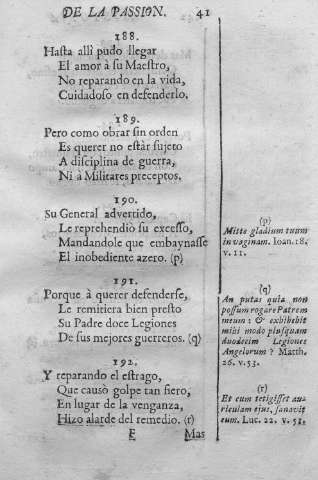 DE LA PASSION. 41
188.
Hasta allì pudo llegar
El amor à su Maestro,
No reparando en la vida,
Cuidadoso en defenderlo.
189.
Pero como obrar sin orden
Es querer no estàr sujeto
A disciplina de guerra,
Ni à Militares preceptos.
190.
Su General advertido,
Le reprehendiò su excesso,
Mandandole que embaynasse
El inobediente azero. (p)
191.
Porque à querer defenderse,
Le remitiera bien presto
Su Padre doce Legiones
De sus mejores guerreros. (q)
192.
Y reparando el estrago,
Que causò golpe tan fiero,
En lugar de la venganza,
Hizo alarde del remedio. (r)
E Mas
(p)
Mitte gladium tuum
in vaginam. Ioan. 18.
v. 11.
(q)
An putas quia non
possum rogare Patrem
meum: & exhibebit
mihi modo plusquam
duodecim Legiones
Angelorum? Matth.
26. v. 53.
(r)
Et cum tetigisset au
riculam ejus, sanavit
eum. Luc. 22. v. 51.